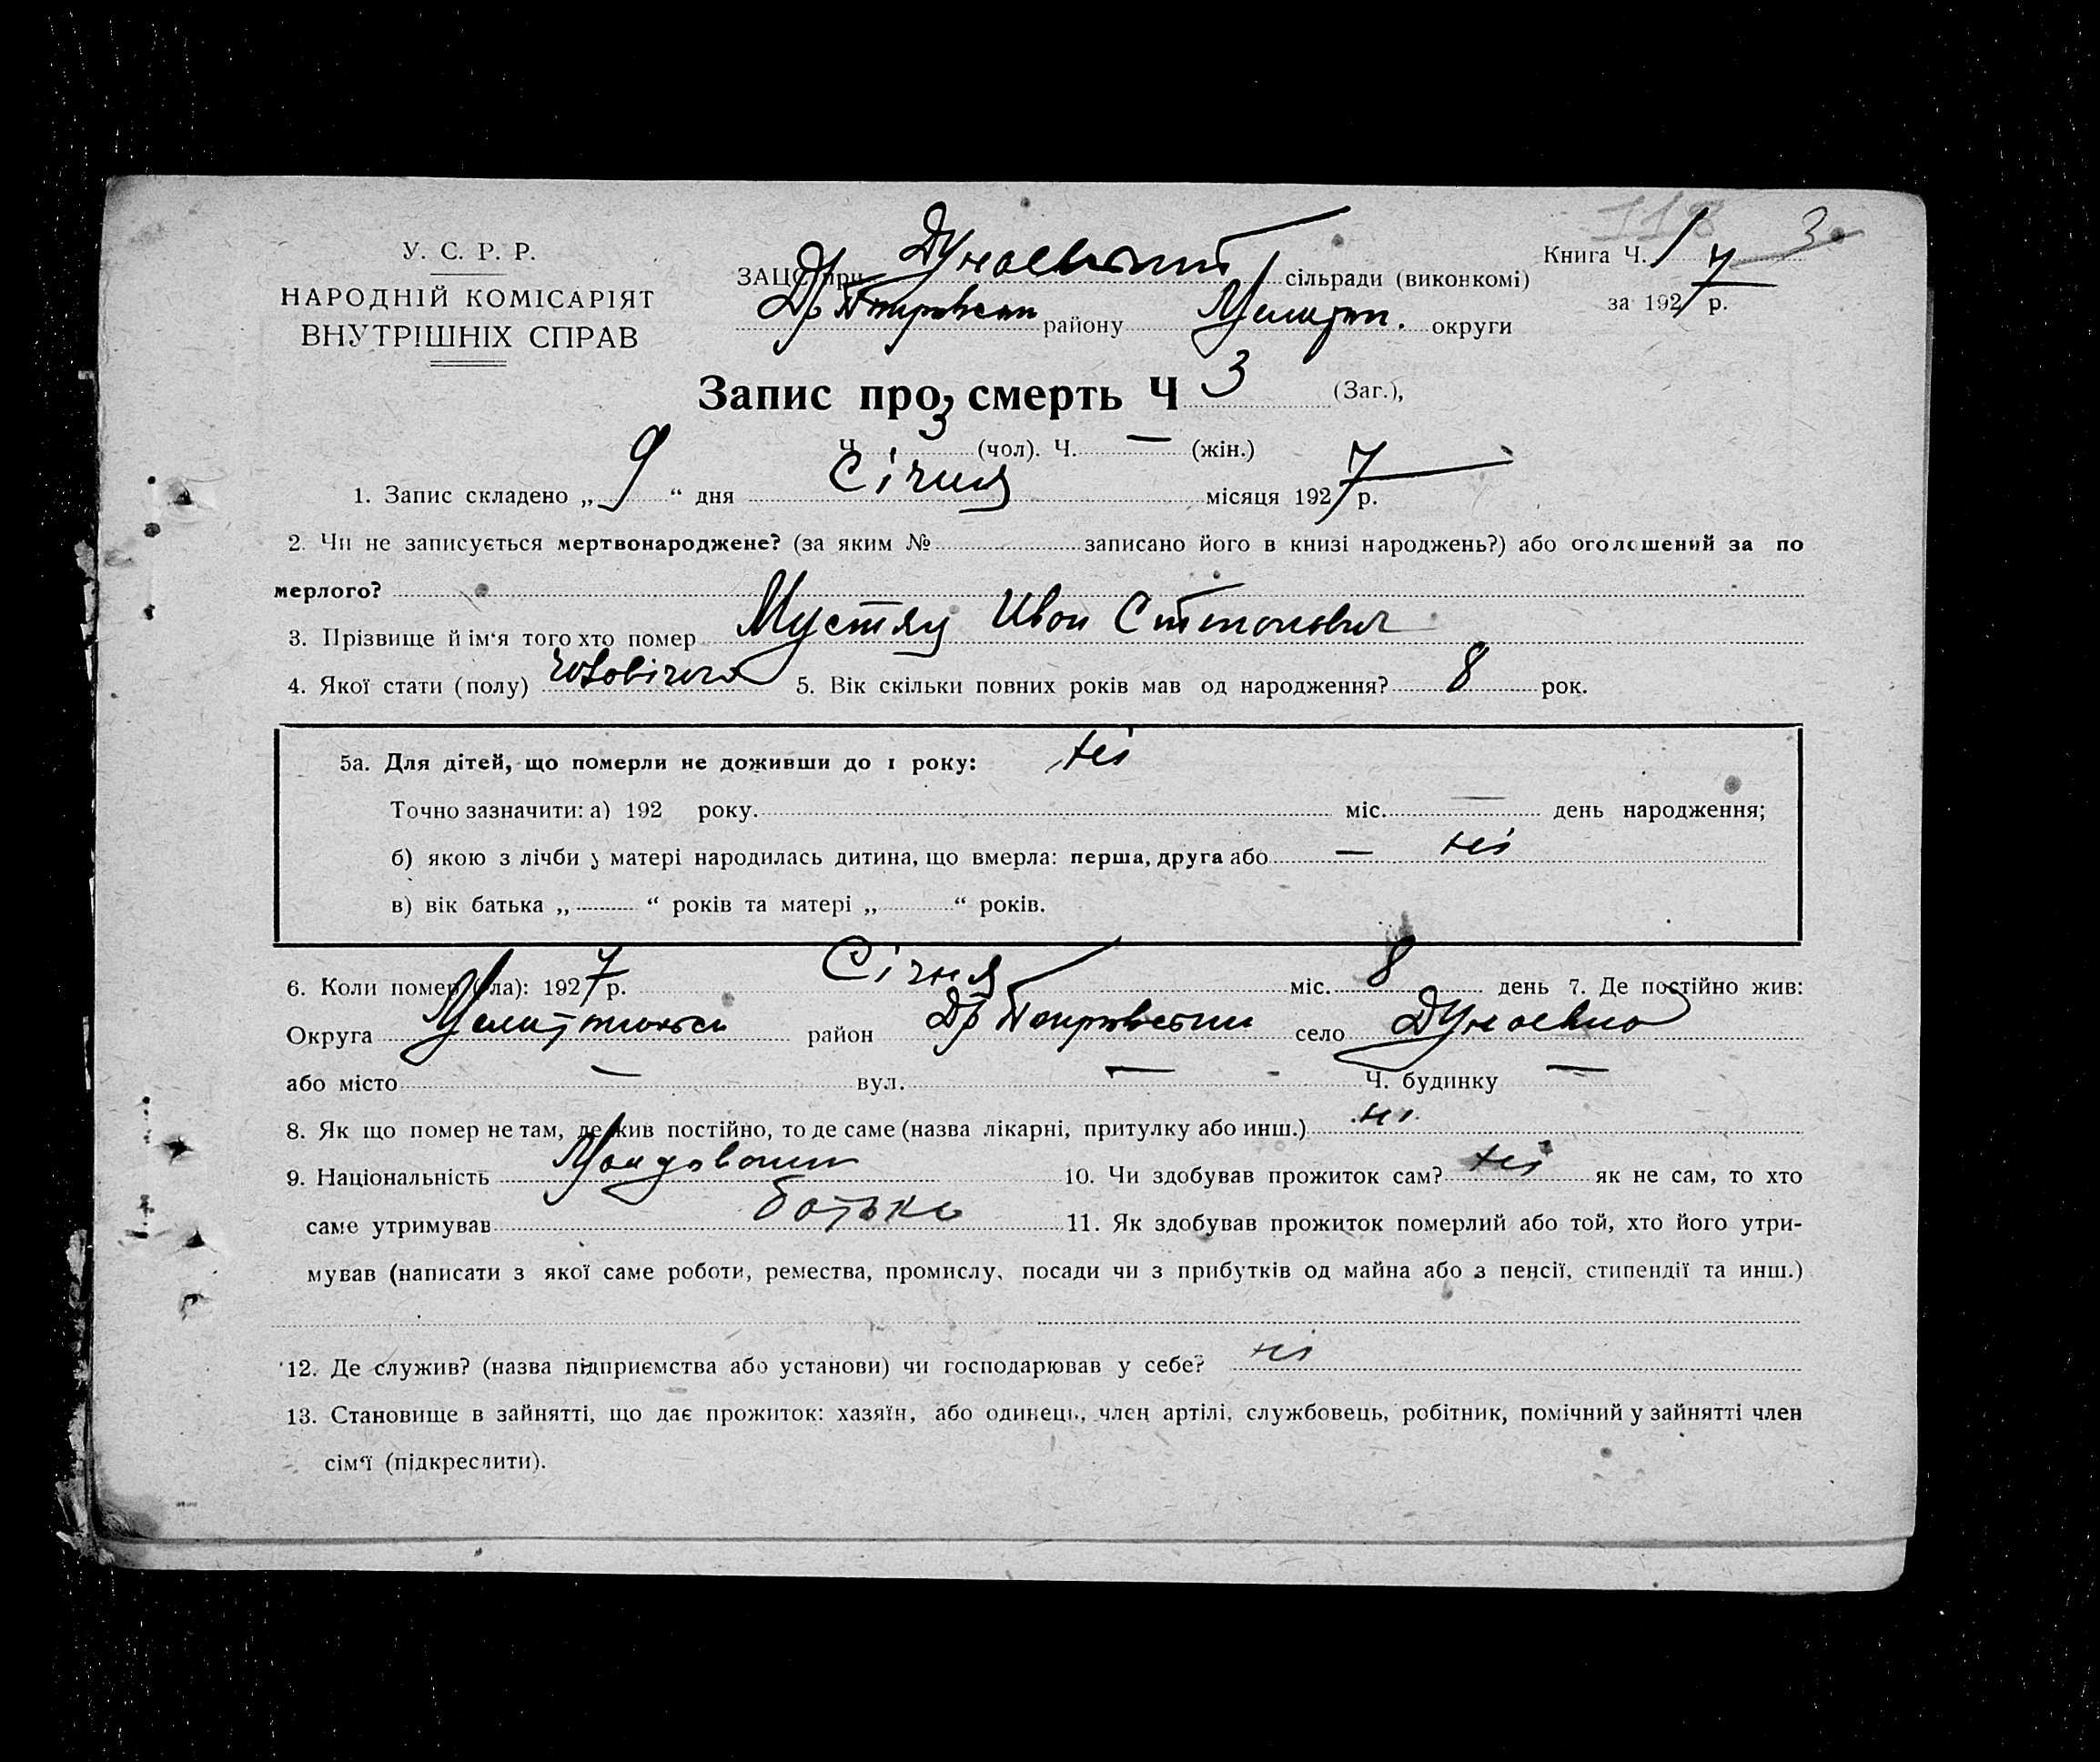 118 3
У. С. Р. Р.
НАРОДНІЙ КОМІСАРІЯТ
ВНУТРІШНІХ СПРАВ
ЗАЦС при Дунаевський сільради (виконкомі)
району Мелитоп. округи
Книга Ч. 1
за 1927 р.
Запис про смерть Ч 3 (Заг.),
Ч 3 (чол). Ч. — (жін.)
1. Запис складено „ 9 “ дня Січня місяця 1927 р.
2. Чи не записується мертвонароджене? (за яким № записано його в книзі народжень?) або оголошений за по
мерлого?
3. Прізвище й ім‘я того хто помер Мустяц Иван Степанович
4. Якої стати (полу) чоловічого 5. Вік скільки повних років мав од народження? 8 рок.
5а. Для дітей, що померли не доживши до 1 року: ні
Точно зазначити: а) 192 року. міс. — день народження;
б) якою з лічби у матері народилась дитина, що вмерла: перша, друга або — ні
в) вік батька „ “ років та матері „ “ років.
6. Коли помер (ла): 1927 р. Січня міс. 8 день 7. Де постійно жив:
Округа район село Дунаевка
або місто — вул. — Ч. будинку —
8. Як що помер не там, де жив постійно, то де саме (назва лікарні, притулку або инш.) ні
9. Національність 10. Чи здобував прожиток сам? ні як не сам, то хто
саме утримував батько 11. Як здобував прожиток померлий або той, хто його утри-
мував (написати з якої саме роботи, ремества, промислу, посади чи з прибутків од майна або з пенсії, стипендії та инш.)
12. Де служив? (назва підприємства або установи) чи господарював у себе? ні
13. Становище в зайнятті, що дає прожиток: хазяїн, або одинець, член артілі, службовець, робітник, помічний у зайнятті член
сім‘ї (підкреслити).